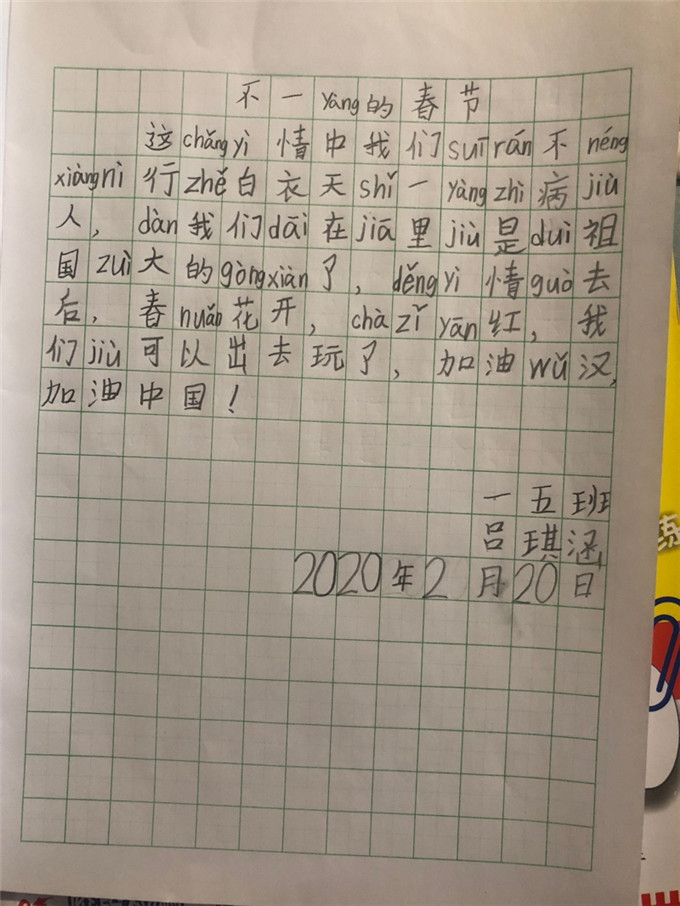 不一yàng的春节
这chǎngyì情中我们suīrán不néng
xiàngnì行zhě白衣天shǐ一yàngzhì病jiù
人，dàn我们dāi在jiā里jiù是duì祖
国zuì大的gòngxiàn了，děngyì情guò去
后，春nuǎn花开，chàzǐyān红，我
们jiù可以出去玩了，加油wǔ汉，
加油中国！
一五班
吕琪涵
2020年2月20日
练